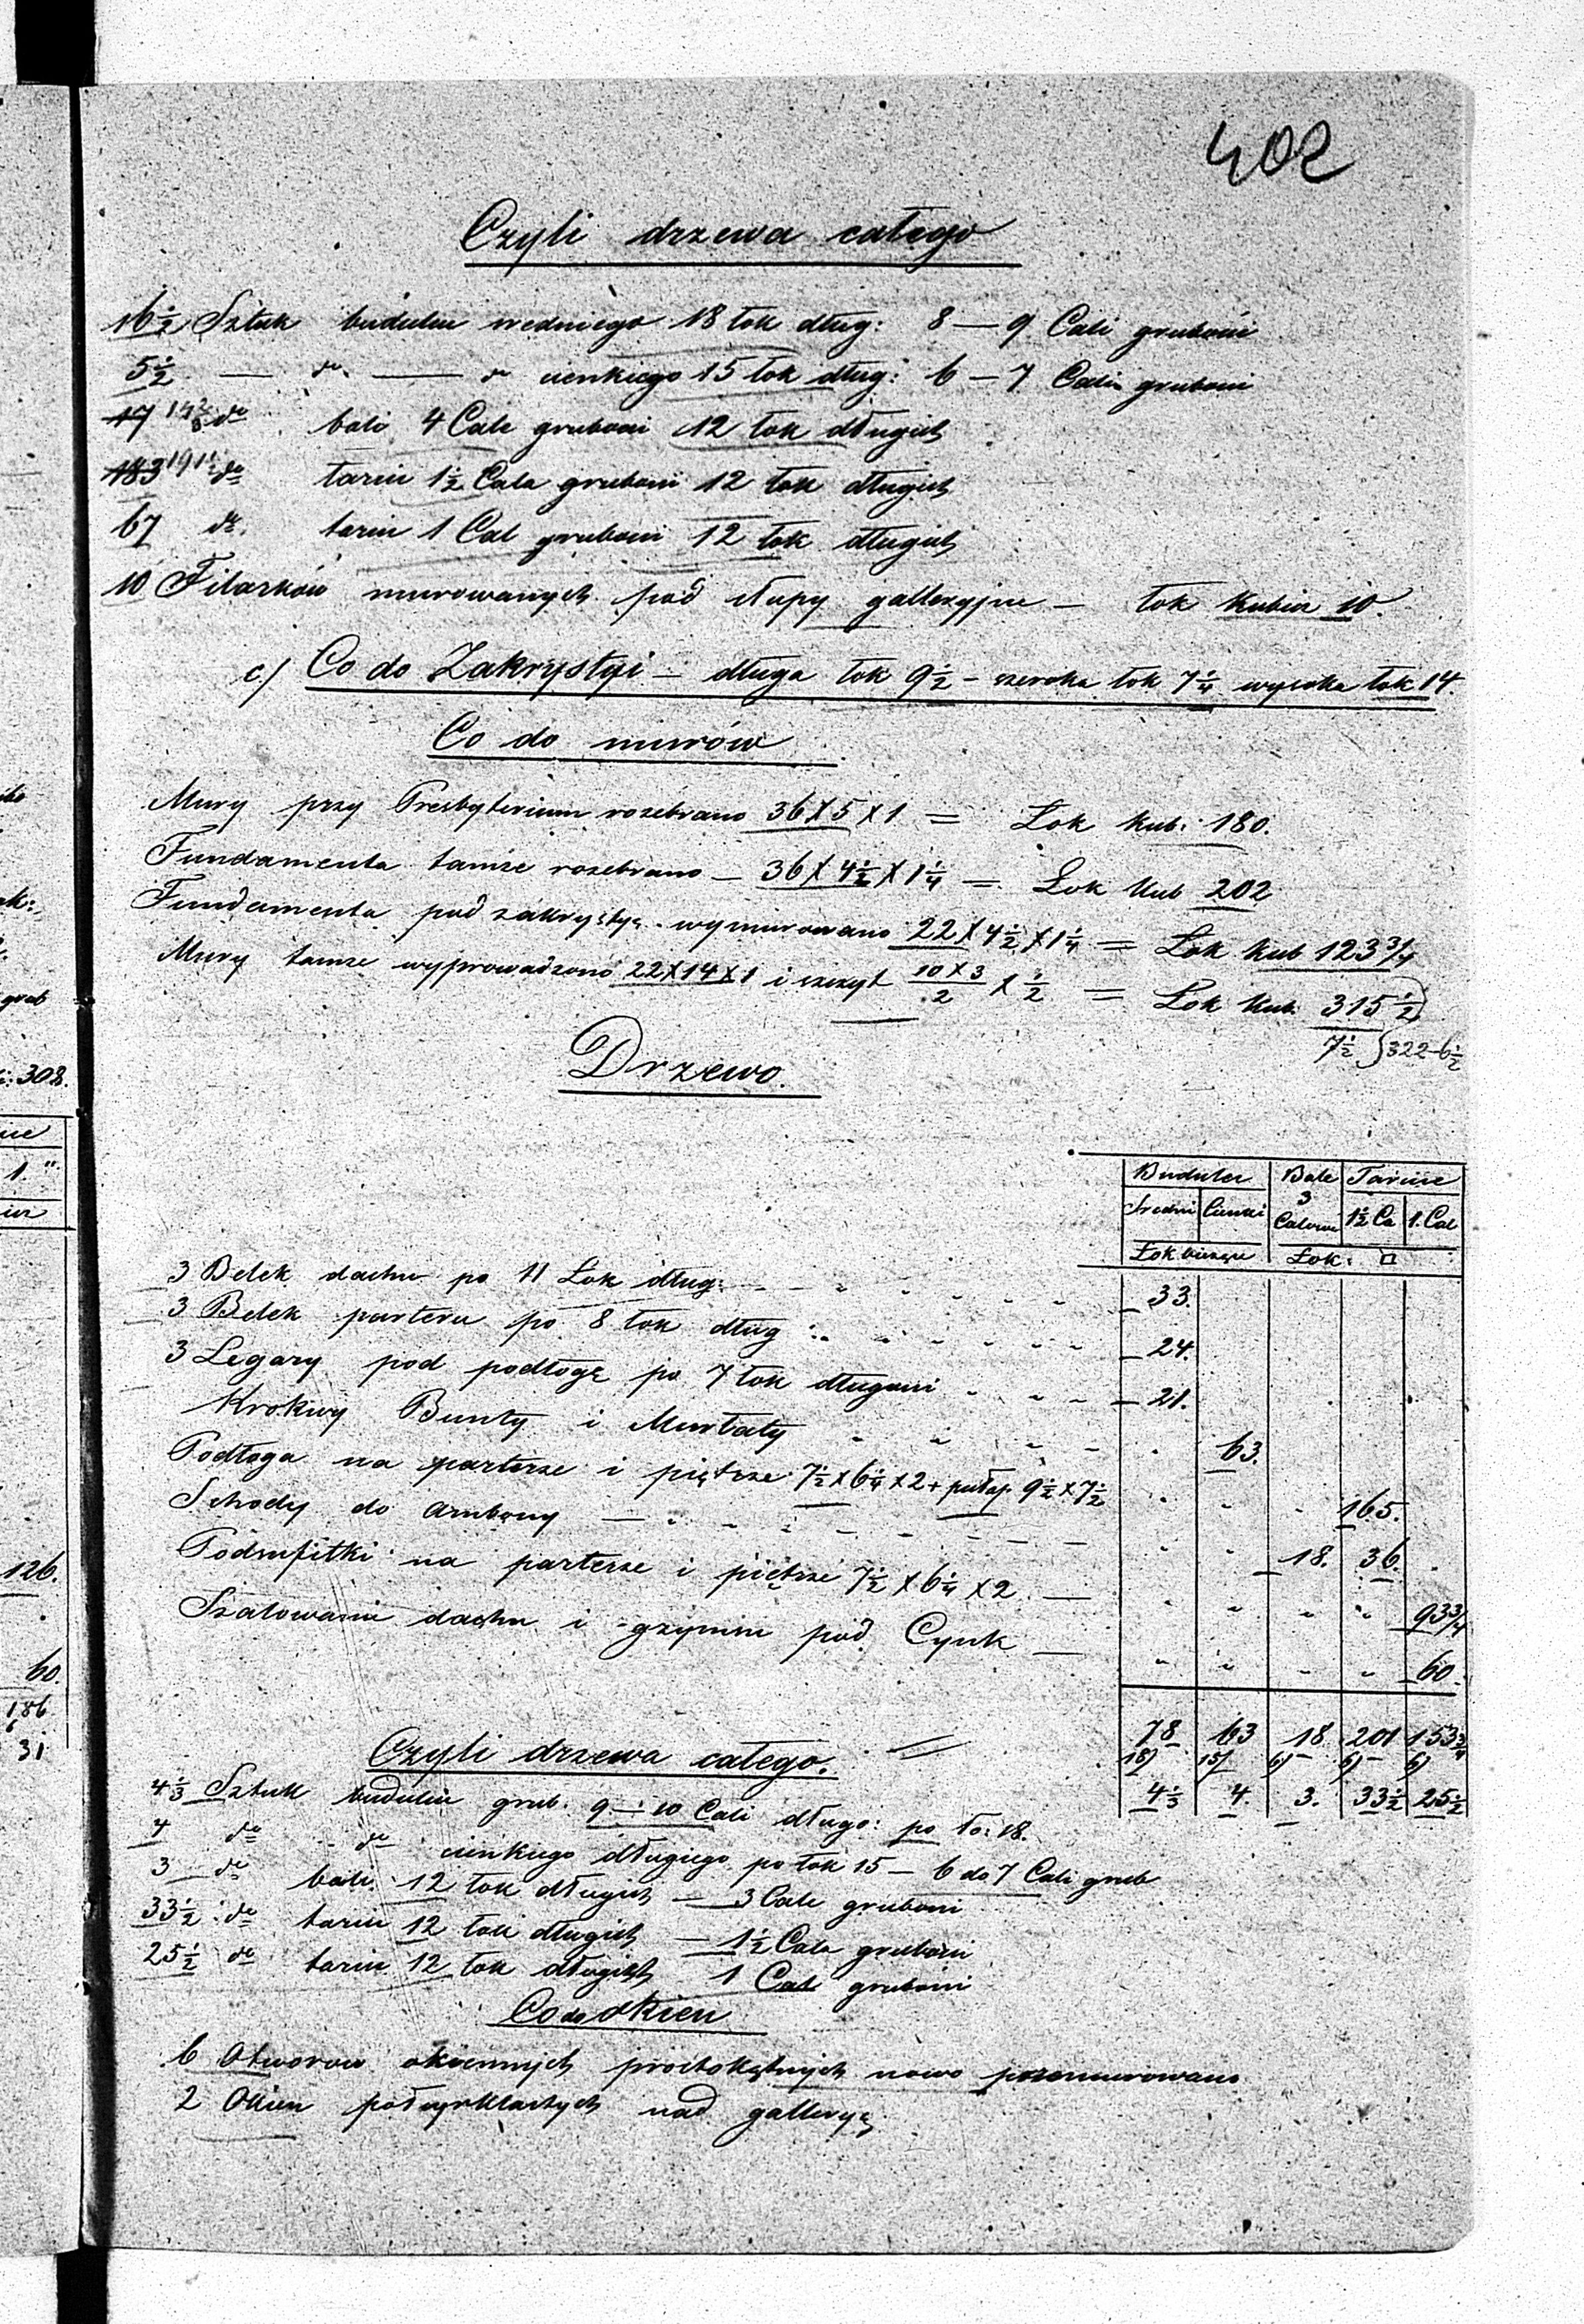 402
Czyli drzewa całego
16½ Sztuk budulcu średniego 18 łok dług: 8 — 9 Cali grubości
5½ — do — do cienkiego 15 łok dług: 6 — 7 Cali grubości
17 do bali 4 Cale grubości 12 łok długich
183 191 do tarcic 1½ Cala grubości 12 łok długich
67 do tarcic 1 Cal grubości 12 łok długich
10 Filarków murowanych pod słupy galleryjne — łok kubicz 10.
c/ Co do Zakrystyi — długa łok 9½ – szeroka łok 7¼ wysoka łok 14.
Co do murów
Mury przy Presbyterium rozebrano 36 X 5 X 1 = Łok kub: 180.
Fundamenta tamże rozebrano — 36 X 4½ X 1¼ = Łok kub 202
Fundamenta pod zakrystyę wymurowano 22 X 4½ X 1¼ = Łok kub 123¾
Mury tamże wyprowadzono 22 X 14 X 1 i szczyt 10 X 3 / 2 X ½ = Łok kub. 315½
7½ 322–6½
Drzewo.
Budulec Bale Tarcice
Średni Cienki 3 Calowe 1½ Ca 1. Cal
Łok bieżące Łok: □
3 Belek dachu po 11 Łok dług: 33.
3 Belek parteru po 8 łok dług: 24.
3 Legary pod podłogę po 7 łok długości 21.
Krokwy Bunty i Murłaty 63.
Podłoga na parterze i piętrze 7½ x 6¼ x 2 + pułap 9½ x 7½ 165.
Schody do Ambony 18. 36.
Podsufitki na parterze i piętrze 7½ x 6¼ x 2 — 93¾
Szalowanie dachu i gzymsu pod Cynk — 60.
78 63 18 201 153¾
18) 15) 6) 6) 6)
4⅓ 4. 3. 33½ 25½
Czyli drzewa całego.
4⅓ Sztuk budulcu grub. 9 — 10 Cali długo: po ło: 18.
4 do do cienkiego długiego po łok 15 — 6 do 7 Cali grub
3 do bali 12 łok długich — 3 Cale grubości
33½ do tarcic 12 łok długich — 1½ Cala grubości
25½ do tarcic 12 łok długich 1 Cal grubości
Co do okien
6 Otworów okiennych prostokątnych nowo przemurowano
2 Okien półcyrklastych nad galleryą
308.
1."
126.
60.
186
6
31